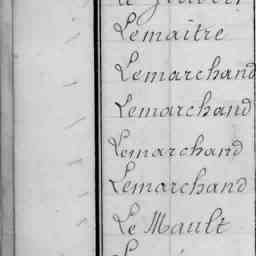 Lemaitre
Lemarchand
Lemarchand
Lemarchand
Lemarchand
Le Mault